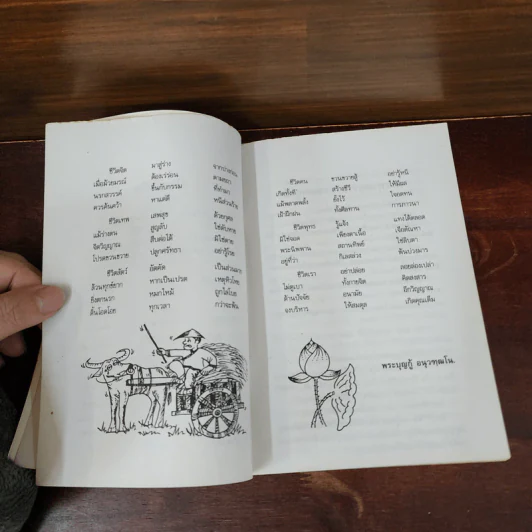 ชีวิตจิต มาสู่ร่าง จากวางก่อน
เมื่อม้วยมรณ์ ต้องเร่ร่อน ตามผลมา
นรกสวรรค์ ขึ้นกับกรรม ที่ทำมา
ควรค้นคว้า หาแต่ดี หนีส่วนร้าย
ชีวิตเทพ เสพสุข ด้วยกุศล
แม้ร่างตน สูญลับ ใช่ดับหาย
จิตวิญญาณ สืบต่อได้ มิใช่ตาย
โปรดขวนขวาย ปลูกศรัทธา อย่ารู้โรย
ชีวิตสัตว์ อัตคัด เป็นส่วนมาก
ล้วนทุกข์ยาก หากเป็นเปรต เหตุหิวโหย
ยิ่งตกนรก หมกไหม้ ถูกไล่โบย
ดิ้นโอดโอย ทุกเวลา กว่าจะพ้น
ชีวิตคน ชวนขวายสู้ อย่ารู้หนี
เกิดทั้งที สร้างชีวี ให้มีผล
แม้พลาดพลั้ง ยั้งไว้ ใจอดทน
เฝ้าฝึกฝน ทั้งศีลทาน การภาวนา
ชีวิตพุทธ รู้แจ้ง แทงได้ตลอด
มิใช่จอด เพียงตาเนื้อ เชื่อตังหา
พระนิพพาน สถานทิพย์ ใช่ลิบตา
อยู่ที่ว่า กิเลสล่วง พ้นบ่วงมาร
ชีวิตเรา อย่าปล่อย ลอยล่องเปล่า
ไม่ดูเบา ทั้งกายจิต ติดสงสาร
ด้านปัจจัย อนามัย อีกวิญญาณ
จงบริหาร ให้สมดุล เกิดคุณเต็ม
พระบุญกู้ อนุวฑฺฒโน.